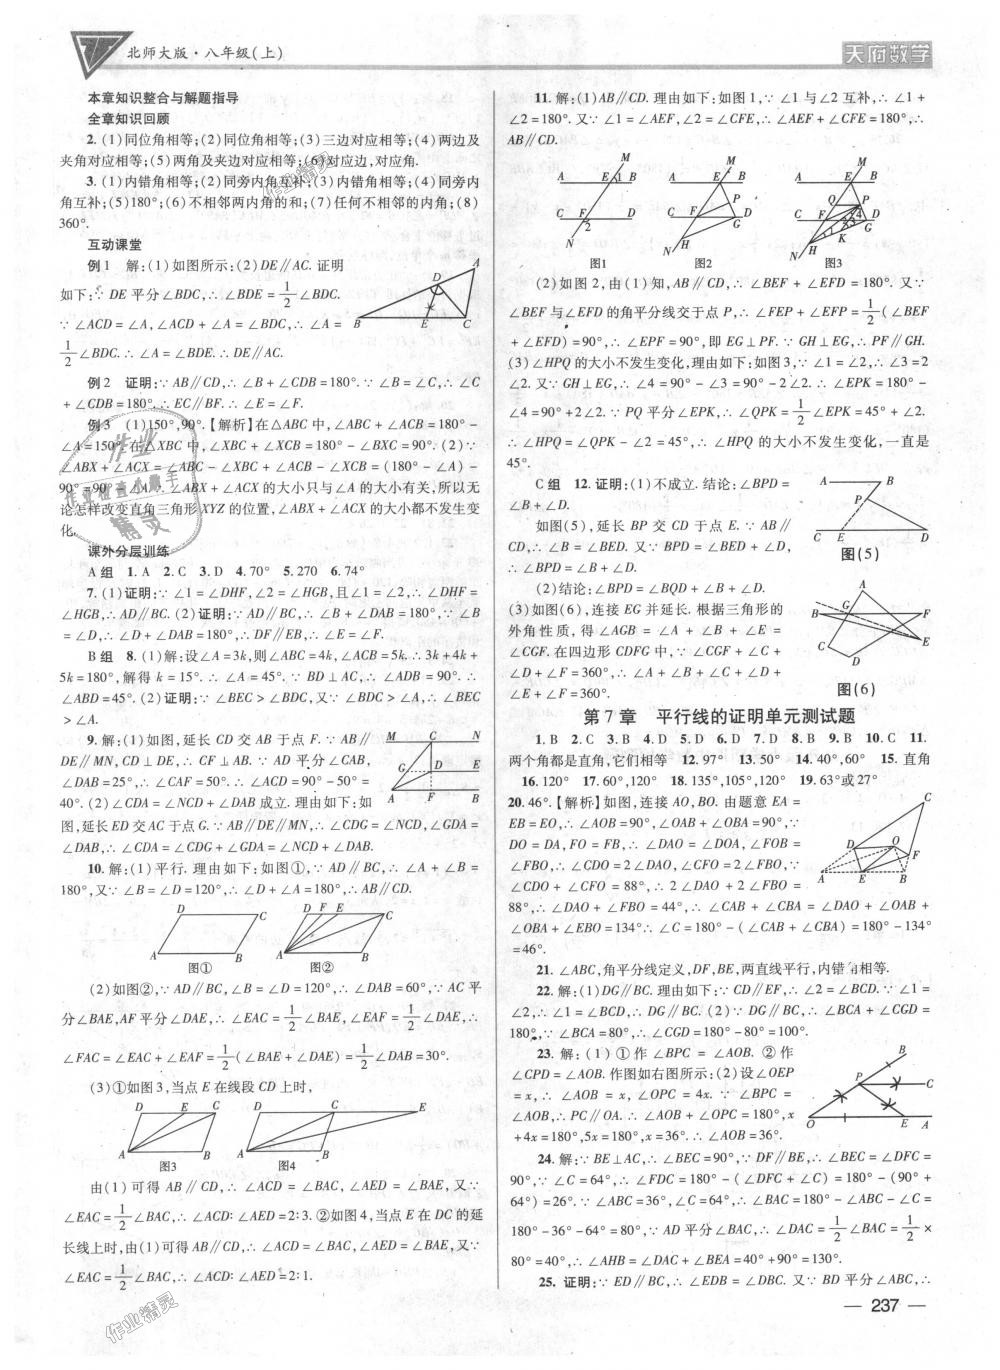 北师大版·八年级(上)
天府数学
本章知识整合与解题指导
全章知识回顾
2. (1)同位角相等;(2)同位角相等;(3)三边对应相等;(4)两边及
夹角对应相等;(5)两角及夹边对应相等;(6)对应边,对应角.
3. (1)内错角相等;(2)同旁内角互补;(3)内错角相等;(4)同旁内
角互补;(5)180°;(6)不相邻两内角的和;(7)任何不相邻的内角;(8)
360°.
互动课堂
例1 解:(1)如图所示:(2)DE∥AC. 证明
如下:∵ DE 平分∠BDC,∴∠BDE = 1/2 ∠BDC.
∵ ∠ACD = ∠A,∠ACD + ∠A = ∠BDC,∴∠A =
1/2 ∠BDC.∴∠A = ∠BDE.∴DE∥AC.
A D B E C
例2 证明:∵AB∥CD,∴∠B + ∠CDB = 180°.∵∠B = ∠C,∴∠C
+ ∠CDB = 180°,∴EC∥BF.∴∠E = ∠F.
例3 (1)150°,90°.【解析】在△ABC 中,∠ABC + ∠ACB = 180° -
∠A = 150°.在△XBC 中,∠XBC + ∠XCB = 180° - ∠BXC = 90°. (2)∵
∠ABX + ∠ACX = ∠ABC - ∠XBC + ∠ACB - ∠XCB = (180° - ∠A) -
90° = 90° - ∠A.∴∠ABX + ∠ACX 的大小只与∠A 的大小有关,所以无
论怎样改变直角三角形 XYZ 的位置,∠ABX + ∠ACX 的大小都不发生变
化.
课外分层训练
A 组 1. A 2. C 3. D 4. 70° 5. 270 6. 74°
7. (1)证明:∵∠1 = ∠DHF,∠2 = ∠HGB,且∠1 = ∠2,∴∠DHF =
∠HGB,∴AD∥BC. (2)证明:∵AD∥BC,∴∠B + ∠DAB = 180°,∵∠B
= ∠D,∴∠D + ∠DAB = 180°,∴DF∥EB,∴∠E = ∠F.
B 组 8. (1)解:设∠A = 3k,则∠ABC = 4k,∠ACB = 5k.∴3k + 4k +
5k = 180°,解得 k = 15°.∴∠A = 45°.∵BD⊥AC,∴∠ADB = 90°.∴
∠ABD = 45°. (2)证明:∵∠BEC > ∠BDC,又∵∠BDC > ∠A,∴∠BEC
> ∠A.
9. 解:(1)如图,延长 CD 交 AB 于点 F.∵AB∥
DE∥MN,CD⊥DE,∴CF⊥AB.∵AD 平分∠CAB,
∠DAB = 25°,∴∠CAF = 50°.∴∠ACD = 90° - 50° =
40°. (2)∠CDA = ∠NCD + ∠DAB 成立. 理由如下:如
图,延长 ED 交 AC 于点 G.∵AB∥DE∥MN,∴∠CDG = ∠NCD,∠GDA =
∠DAB,∴∠CDA = ∠CDG + ∠GDA = ∠NCD + ∠DAB.
M C N G D E A F B
10. 解:(1)平行. 理由如下:如图①,∵AD∥BC,∴∠A + ∠B =
180°,又∵∠B = ∠D = 120°,∴∠D + ∠A = 180°,∴AB∥CD.
D C A B 图①
D F E C A B 图②
(2)如图②,∵AD∥BC,∠B = ∠D = 120°,∴∠DAB = 60°,∵AC 平
分∠BAE,AF 平分∠DAE,∴∠EAC = 1/2 ∠BAE,∠EAF = 1/2 ∠DAE,∴
∠FAC = ∠EAC + ∠EAF = 1/2 (∠BAE + ∠DAE) = 1/2 ∠DAB = 30°.
(3)①如图3,当点 E 在线段 CD 上时,
D E C A B 图3
D C E A B 图4
由(1)可得 AB∥CD,∴∠ACD = ∠BAC,∠AED = ∠BAE,又∵
∠EAC = 1/2 ∠BAC,∴∠ACD:∠AED = 2:3. ②如图4,当点 E 在 DC 的延
长线上时,由(1)可得 AB∥CD,∴∠ACD = ∠BAC,∠AED = ∠BAE,又∵
∠EAC = 1/2 ∠BAC,∴∠ACD:∠AED = 2:1.
11. 解:(1)AB∥CD. 理由如下:如图1,∵∠1与∠2互补,∴∠1 +
∠2 = 180°. 又∵∠1 = ∠AEF,∠2 = ∠CFE,∴∠AEF + ∠CFE = 180°,∴
AB∥CD.
M A E 1 B C F D 2 N 图1
M A E B P C F D G H N 图2
M A E B Q P C F D G K H N 图3
(2)如图2,由(1)知,AB∥CD,∴∠BEF + ∠EFD = 180°. 又∵
∠BEF 与∠EFD 的角平分线交于点 P,∴∠FEP + ∠EFP = 1/2 (∠BEF
+ ∠EFD) = 90°,∴∠EPF = 90°,即 EG⊥PF.∵GH⊥EG,∴PF∥GH.
(3)∠HPQ 的大小不发生变化,理由如下:如图3,∵∠1 = ∠2,∴∠3 = 2
∠2. 又∵GH⊥EG,∴∠4 = 90° - ∠3 = 90° - 2∠2.∴∠EPK = 180° -
∠4 = 90° + 2∠2.∵PQ 平分∠EPK,∴∠QPK = 1/2 ∠EPK = 45° + ∠2.
∴∠HPQ = ∠QPK - ∠2 = 45°,∴∠HPQ 的大小不发生变化,一直是
45°.
C 组 12. 证明:(1)不成立. 结论:∠BPD =
∠B + ∠D.
如图(5),延长 BP 交 CD 于点 E.∵AB∥
CD,∴∠B = ∠BED. 又∵∠BPD = ∠BED + ∠D,
∴∠BPD = ∠B + ∠D.
A B P C E D
图(5)
(2)结论:∠BPD = ∠BQD + ∠B + ∠D.
(3)如图(6),连接 EG 并延长. 根据三角形的
外角性质,得∠AGB = ∠A + ∠B + ∠E =
∠CGF. 在四边形 CDFG 中,∵∠CGF + ∠C +
∠D + ∠F = 360°,∴∠A + ∠B + ∠C + ∠D +
∠E + ∠F = 360°.
A B G F E C D
图(6)
第7章 平行线的证明单元测试题
1. B 2. C 3. B 4. D 5. D 6. D 7. D 8. B 9. B 10. C 11.
两个角都是直角,它们相等 12. 97° 13. 50° 14. 40°,60° 15. 直角
16. 120° 17. 60°,120° 18. 135°,105°,120° 19. 63°或27°
20. 46°.【解析】如图,连接 AO,BO. 由题意 EA =
EB = EO,∴∠AOB = 90°,∠OAB + ∠OBA = 90°,∵
DO = DA,FO = FB,∴∠DAO = ∠DOA,∠FOB =
∠FBO,∴∠CDO = 2∠DAO,∠CFO = 2∠FBO,∵
∠CDO + ∠CFO = 88°,∴2∠DAO + 2∠FBO =
88°,∴∠DAO + ∠FBO = 44°,∴∠CAB + ∠CBA = ∠DAO + ∠OAB +
∠OBA + ∠EBO = 134°∴∠C = 180° - (∠CAB + ∠CBA) = 180° - 134°
= 46°.
C D O F A E B
21. ∠ABC,角平分线定义,DF,BE,两直线平行,内错角相等.
22. 解:(1)DG∥BC. 理由如下:∵CD∥EF,∴∠2 = ∠BCD.∵∠1 =
∠2,∴∠1 = ∠BCD,∴DG∥BC. (2)∵DG∥BC,∴∠BCA + ∠CGD =
180°,∵∠BCA = 80°,∴∠CGD = 180° - 80° = 100°.
23. 解:(1)①作∠BPC = ∠AOB. ②作
∠CPD = ∠AOB. 作图如右图所示:(2)设∠OEP
= x,∴∠AOB = x,∴∠OPC = 4x.∵∠BPC =
∠AOB,∴PC∥OA.∴∠AOB + ∠OPC = 180°,x
+ 4x = 180°,5x = 180°,x = 36°.∴∠AOB = 36°.
B P C O E A
24. 解:∵BE⊥AC,∴∠BEC = 90°,∵DF∥BE,∴∠BEC = ∠DFC =
90°,∵∠C = 64°,∴∠FDC = 180° - (∠DFC + ∠C) = 180° - (90° +
64°) = 26°.∵∠ABC = 36°,∠C = 64°,∴∠BAC = 180° - ∠ABC - ∠C =
180° - 36° - 64° = 80°,∵AD 平分∠BAC,∴∠DAC = 1/2 ∠BAC = 1/2 ×
80° = 40°,∴∠AHB = ∠DAC + ∠BEA = 40° + 90° = 130°.
25. 证明:∵ED∥BC,∴∠EDB = ∠DBC. 又∵BD 平分∠ABC,∴
— 237 —
作业精灵